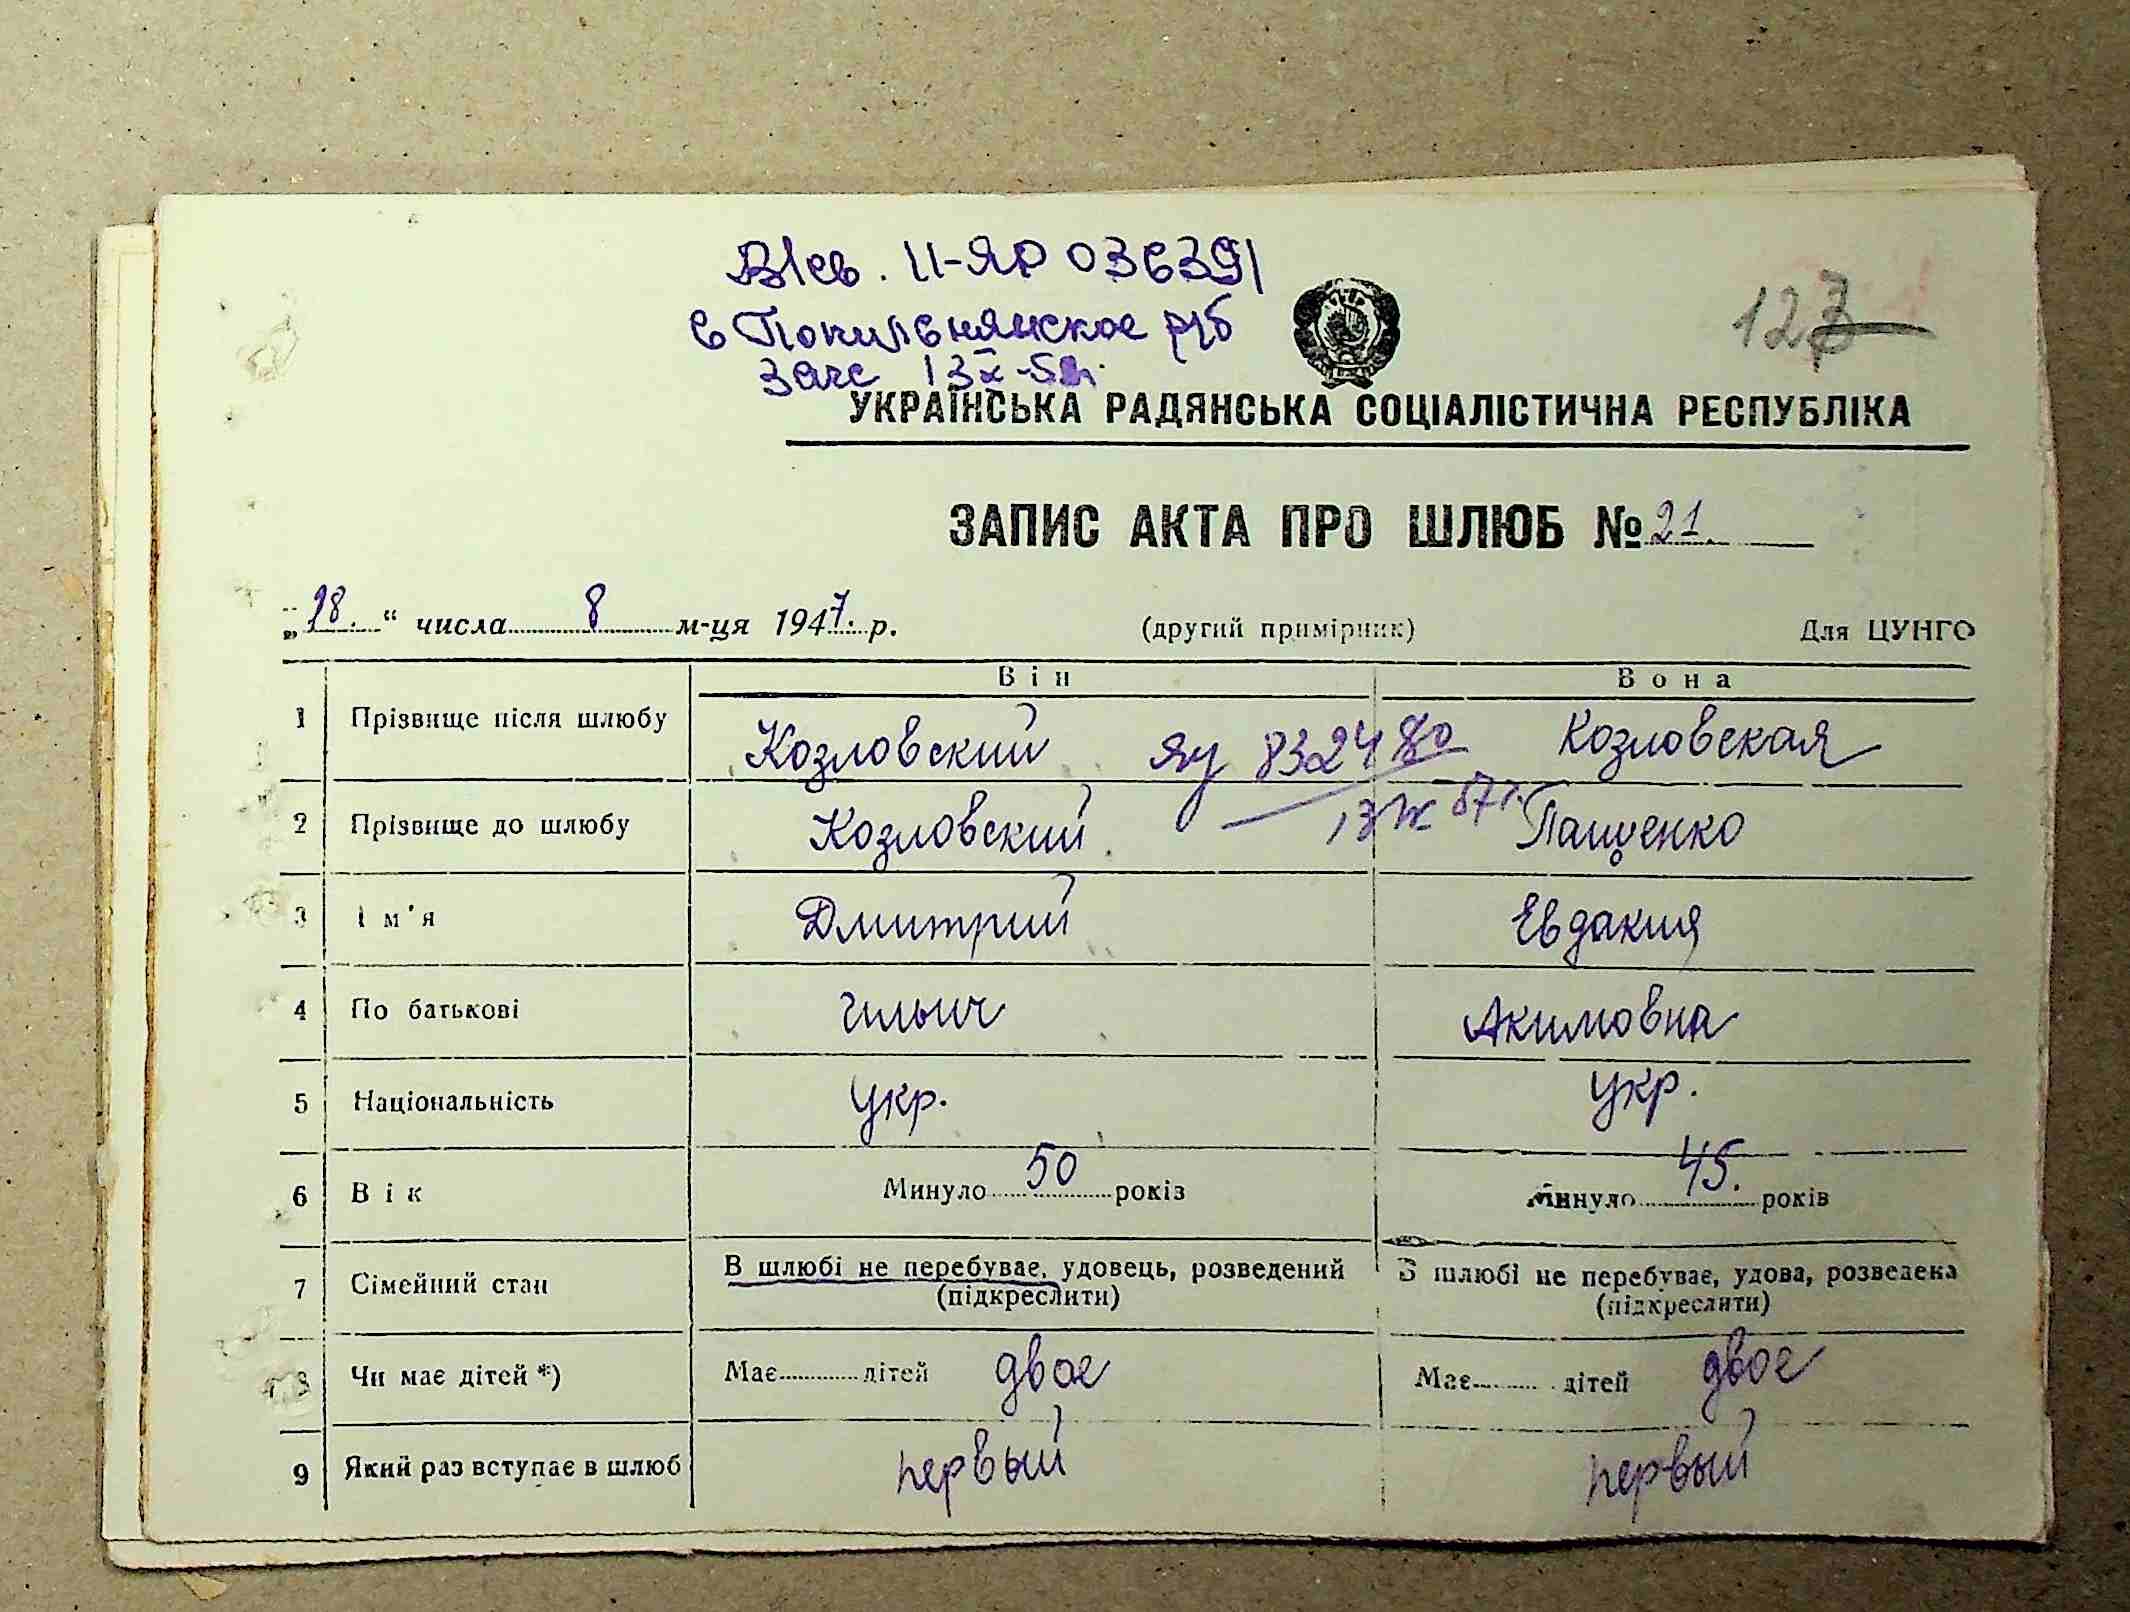 II-ЯР 036391
в Попильнянское р/б
Загс 13 X-5
127
УКРАЇНСЬКА РАДЯНСЬКА СОЦІАЛІСТИЧНА РЕСПУБЛІКА
ЗАПИС АКТА ПРО ШЛЮБ № 21.
„ 28. “ числа 8 м-ця 1947. р. (другий примірник) Для ЦУНГО
Він Вона
1 Прізвище після шлюбу Козловский ЯУ 832480 Козловская
2 Прізвище до шлюбу Козловский 57 г. Пащенко
3 Ім'я Дмитрий Евдакия
4 По батькові Ильич Акимовна
5 Національність Укр. Укр.
6 Вік Минуло 50 років Минуло 45. років
7 Сімейний стан В шлюбі не перебуває, удовець, розведений В шлюбі не перебуває, удова, розведена
(підкреслити) (підкреслити)
8 Чи має дітей *) Має дітей двое Має дітей двое
9 Який раз вступає в шлюб первый первый